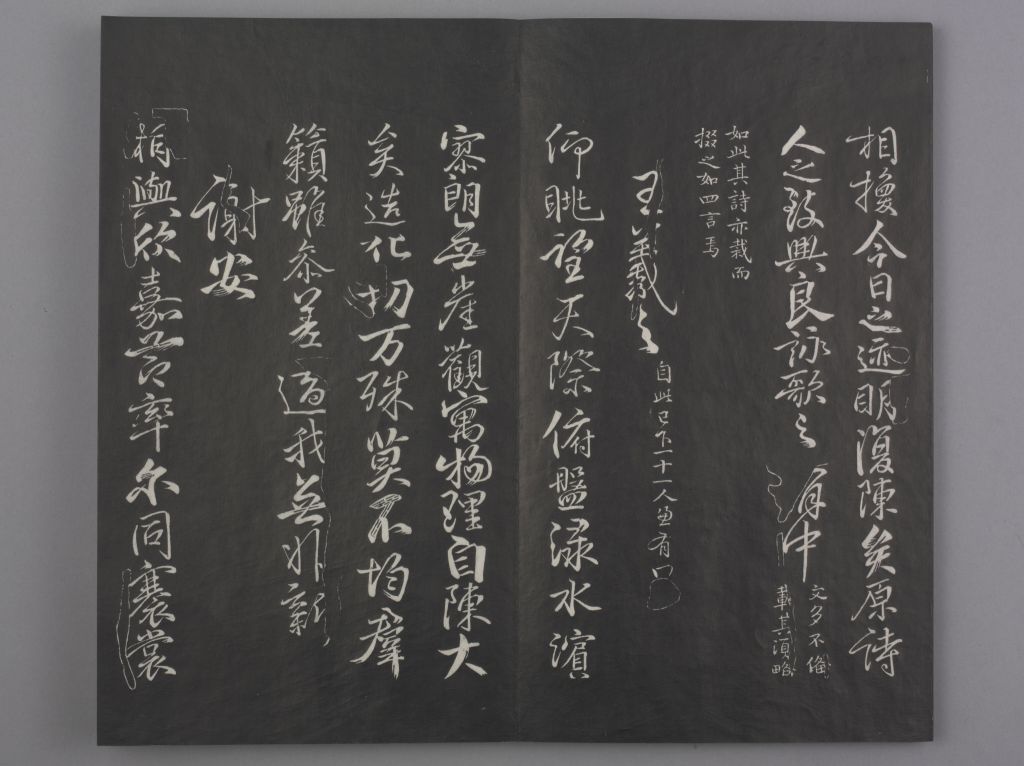 相擾今日之迹明復陳矣原詩
人之致興良詠歌之有中
文多不備
載其略
如此其詩亦裁而
掇之如四言焉
王羲之 自此已下一十一人並有
仰眺望天際俯盤淥水濱
寥朗無崖觀寓物理自陳大
矣造化功万殊莫不均羣
籟雖參差適我无非新
謝安
相與欣嘉節率尔同褰裳